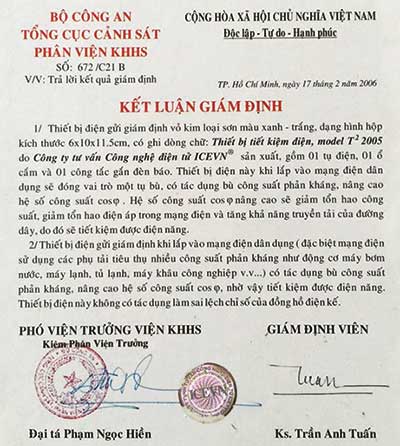 BỘ CÔNG AN
TỔNG CỤC CẢNH SÁT
PHÂN VIỆN KHHS
SỐ: 672 /C21 B
V/V: Trả lời kết quả giám định
CỘNG HÒA XÃ HỘI CHỦ NGHĨA VIỆT NAM
Độc lập - Tự do - Hạnh phúc
TP. Hồ Chí Minh, ngày 17 tháng 2 năm 2006
KẾT LUẬN GIÁM ĐỊNH
1/ Thiết bị điện gửi giám định vỏ kim loại sơn màu xanh - trắng, dạng hình hộp
kích thước 6x10x11.5cm, có ghi dòng chữ: Thiết bị tiết kiệm điện, model T-2 2005
do Công ty tư vấn Công nghệ điện tử ICEVN® sản xuất, gồm 01 tụ điện, 01 ổ
cắm và 01 công tắc gắn đèn báo. Thiết bị này khi lắp vào mạng điện dân
dụng sẽ đóng vai trò một tụ bù, có tác dụng bù công suất phản kháng, nâng cao
hệ số công suất cosφ. Hệ số công suất cosφ nâng cao sẽ giảm tổn hao công
suất, giảm tổn hao điện áp trong mạng điện và tăng khả năng truyền tải của đường
dây, do đó sẽ tiết kiệm được điện năng.
2/ Thiết bị điện gửi giám định khi lắp vào mạng điện dân dụng ( đặc biệt mạng điện
sử dụng các phụ tải tiêu thụ nhiều công suất phản kháng như động cơ máy bơm
nước, máy lạnh, tủ lạnh, máy khâu công nghiệp v.v...) có tác dụng bù công suất
phản kháng, nâng cao hệ số công suất cosφ, nhờ vậy tiết kiệm được điện năng.
Thiết bị điện này không có tác dụng làm sai lệch chỉ số của đồng hồ điện kế.
PHÓ VIỆN TRƯỞNG VIỆN KHHS
Kiêm Phân Viện Trưởng
GIÁM ĐỊNH VIÊN
ICEVN
Đại tá Phạm Ngọc Hiền
Ks. Trần Anh Tuấn